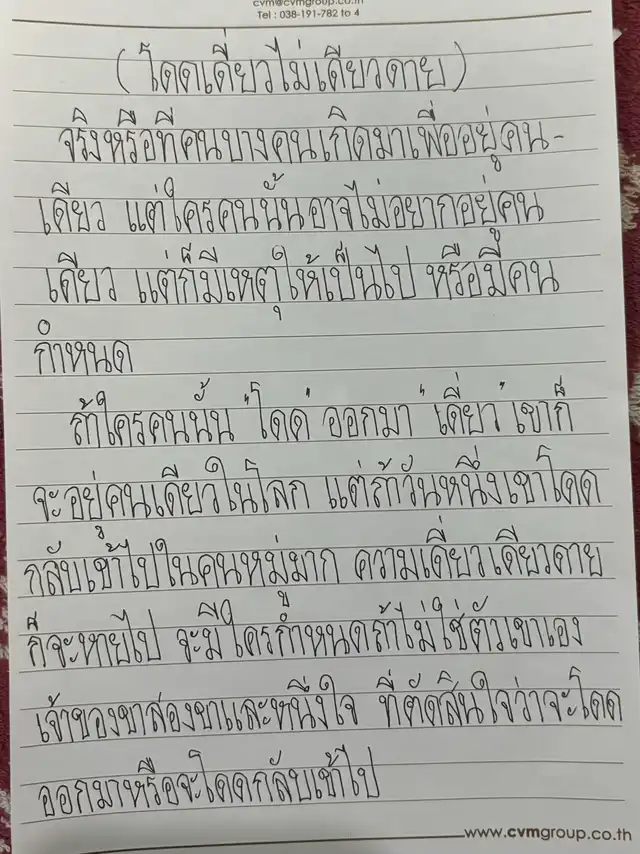 cvm@cvmgroup.co.th
Tel : 038-191-782 to 4
(โดดเดี่ยวไม่เดียวดาย)
จริงหรือที่คนบางคนเกิดมาเพื่ออยู่คน-
เดียว แต่ใครคนนั้นอาจไม่อยากอยู่คน
เดียว แต่ก็มีเหตุให้เป็นไป หรือมีคน
กำหนด
ถ้าใครคนนั้น "โดด" ออกมา "เดี่ยว" เขาก็
จะอยู่คนเดียวในโลก แต่ถ้าวันหนึ่งเขาโดด
กลับเข้าไปในคนหมู่มาก ความเดี่ยวเดียวดาย
ก็จะหายไป จะมีใครกำหนดถ้าไม่ใช่ตัวเขาเอง
เจ้าของขาสองขาและหนึ่งใจ ที่ตัดสินใจว่าจะโดด
ออกมาหรือจะโดดกลับเข้าไป
www.cvmgroup.co.th